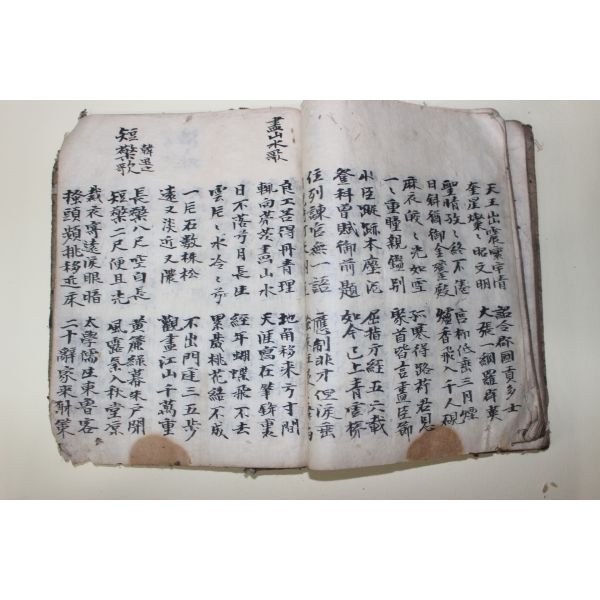 天王出震寰宇清
奎星燦〻昭文明
詔令郡國貢多士
大張一網羅群英
聖情孜〻終不倦
日斜猶御金鑾殿
宮柳低垂三月煙
爐香飛入千人硯
麻衣皎〻光如雪
一〻重瞳親鑑別
孤寒得路荷君恩
聚首皆言盡臣節
小臣蹤跡本塵泥
登科曾賦御前題
屈指方經五六載
如今已上青雲梯
位列諫官無一語
應制非才但淚垂
畫山水歌
良工善得丹青理
輒向茅茨畫山水
地角移來方寸間
天涯寫在筆鋒裏
日不落兮月長生
雲片〻水冷〻兮
經年蝴蝶飛不去
累歲桃花結不成
一片石數株松
遠又淡近又濃
不出門庭三五步
觀盡江山千萬重
短檠歌 韓退之
長檠八尺空自長
短檠二尺便且光
黃簾綠幕朱戶閉
風露氣入秋堂凉
裁衣寄遠淚眼暗
搔頭頻挑移近床
太學儒生東魯客
二十辭家來射策